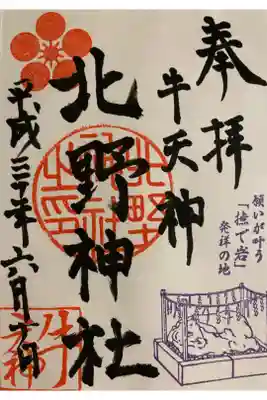 奉拝
願いが叶う
「撫で岩」
発祥の地
牛天神
北野神社
平成三十年六月